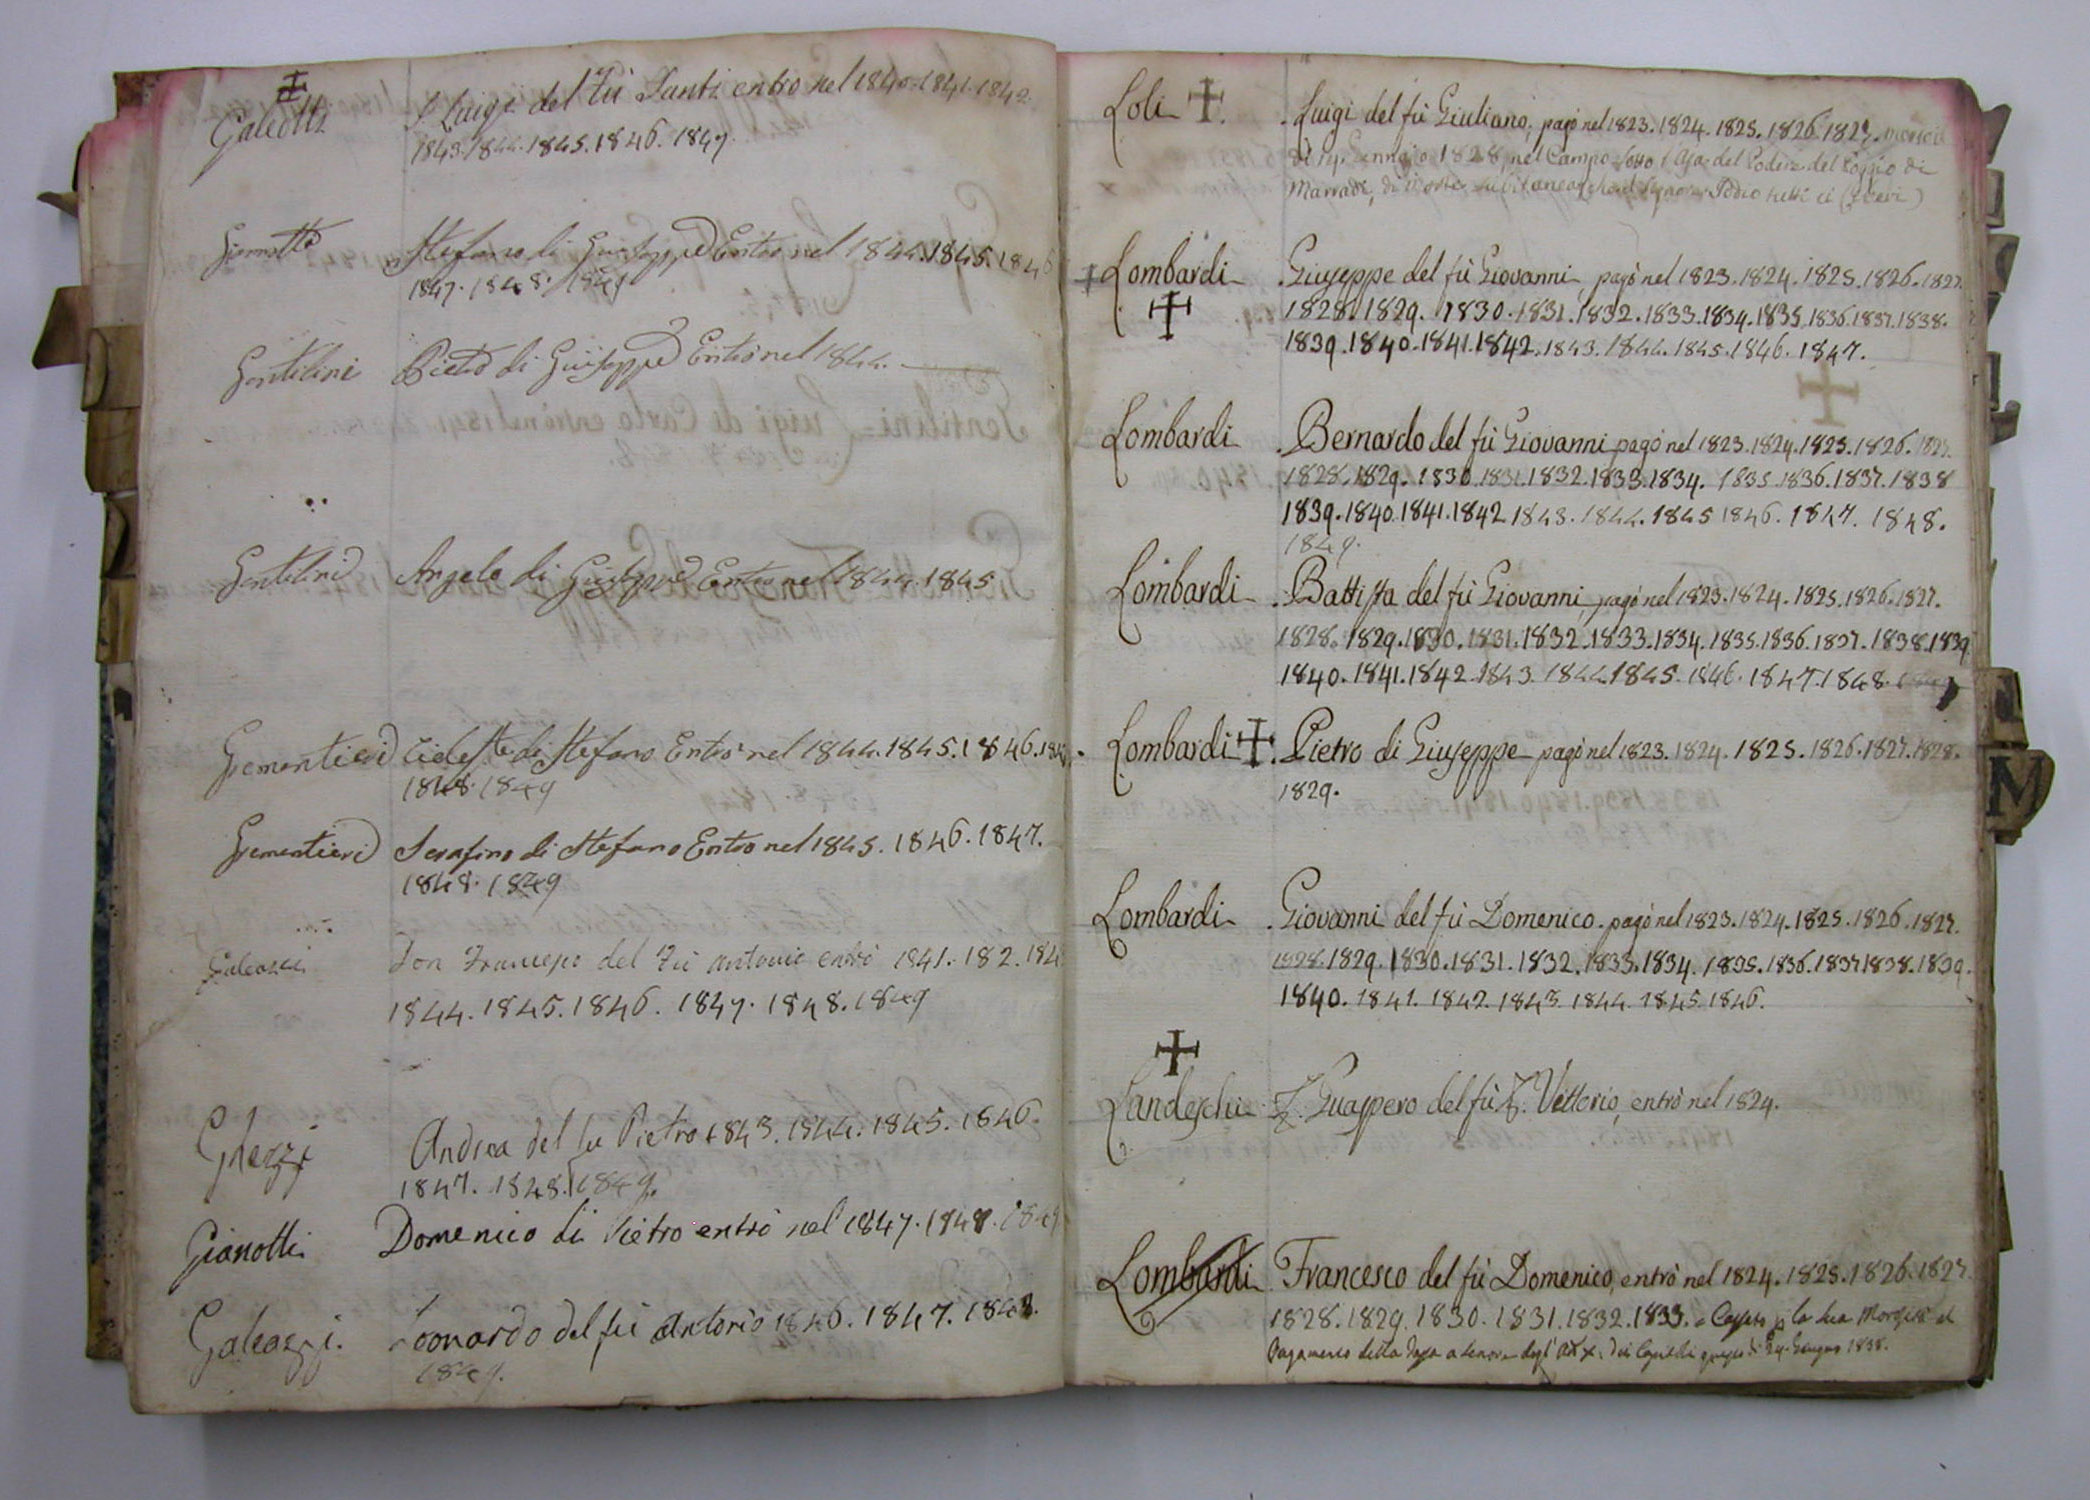 Galeotti
S. Luigi del fù Santi entrò nel 1840. 1841. 1842.
1843. 1844. 1845. 1846. 1847.
Stefano di Giuseppe Entrò nel 1844. 1845. 1846
1847. 1848. 1849
Gentilini Pietro di Giuseppe Entrò nel 1844.
Gentilini Angelo di Giuseppe Entrò nel 1844. 1845
Grementieri Celeste di Stefano Entrò nel 1844. 1845. 1846. 1847.
1848. 1849
Grementieri Serafino di Stefano Entrò nel 1845. 1846. 1847.
1848. 1849
Galeazzi Don Francesco del fù Antonio entrò 1841. 182. 184
1844. 1845. 1846. 1847. 1848. 1849
Ghezzi Andrea del fu Pietro 1843. 1844. 1845. 1846.
1847. 1848. 1849.
Gianotti Domenico di Pietro entrò nel 1847. 1848. 1849
Galeazzi. Leonardo del fù Antonio 1846. 1847. 1848.
1849.
Loli . Luigi del fù Giuliano, pagò nel 1823. 1824. 1825. 1826. 1827. morì
1828, nel Campo sotto l'Aja del Podere del Poggio di
Marradi, di morte subitanea che il Signore Iddio tutti ci
Lombardi . Giuseppe del fù Giovanni pagò nel 1823. 1824. 1825. 1826. 1827.
1828. 1829. 1830. 1831. 1832. 1833. 1834. 1835. 1836. 1837. 1838.
1839. 1840. 1841. 1842. 1843. 1844. 1845. 1846. 1847.
Lombardi . Bernardo del fù Giovanni pagò nel 1823. 1824. 1825. 1826. 1827.
1828. 1829. 1830. 1831. 1832. 1833. 1834. 1835. 1836. 1837. 1838
1839. 1840. 1841. 1842. 1843. 1844. 1845 1846. 1847. 1848.
1849.
Lombardi . Battista del fù Giovanni, pagò nel 1823. 1824. 1825. 1826. 1827.
1828. 1829. 1830. 1831. 1832. 1833. 1834. 1835. 1836. 1837. 1838. 1839
1840. 1841. 1842. 1843. 1844. 1845. 1846. 1847. 1848.
Lombardi . Pietro di Giuseppe pagò nel 1823. 1824. 1825. 1826. 1827. 1828.
1829.
M
Lombardi . Giovanni del fù Domenico. pagò nel 1823. 1824. 1825. 1826. 1827.
1828. 1829. 1830. 1831. 1832. 1833. 1834. 1835. 1836. 1837. 1838. 1839.
1840. 1841. 1842. 1843. 1844. 1845. 1846.
Landeschi Guaspero del fù Vittorio, entrò nel 1824.
Lombardi Francesco del fù Domenico, entrò nel 1824. 1825. 1826. 1827
1828. 1829. 1830. 1831. 1832. 1833. Cassato la sua al
Pagamento della Tassa a tenore degl' Capitoli 24. Giugno 1838.